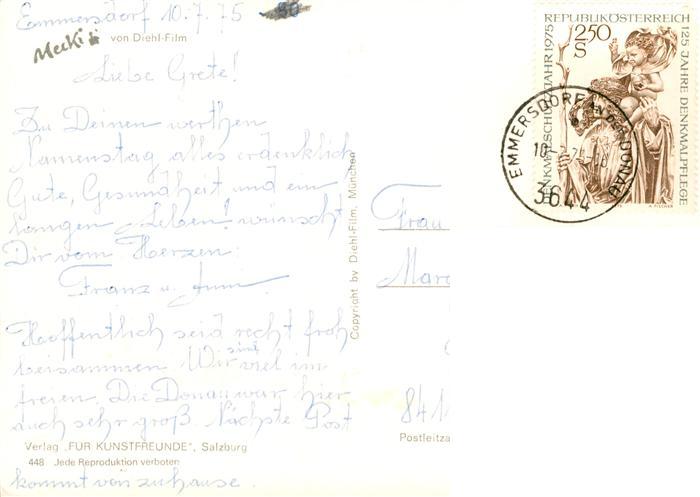 Emmersdorf 10.7.75
Mecki
von Diehl-Film
Liebe Grete!
Zu Deinen werthen
Namenstag alles erdenklich
Gute, Gesundheit und ein
langen Leben! wünscht
Dir vom Herzen
Franz u.
Hoffentlich seid recht froh
beisammen. Wir sind viel im
freien. Die Donau war hier
auch sehr groß. Nächste Post
Verlag „FÜR KUNSTFREUNDE", Salzburg
448 Jede Reproduktion verboten
kommt von zuhause.
Copyright by Diehl-Film, München
REPUBLIK ÖSTERREICH
2.50
S
DENKMALSCHUTZJAHR 1975
125 JAHRE DENKMALPFLEGE
A. FISCHER
EMMERSDORF AN DER DONAU
3644
Frau
Marg
841
Postleitza